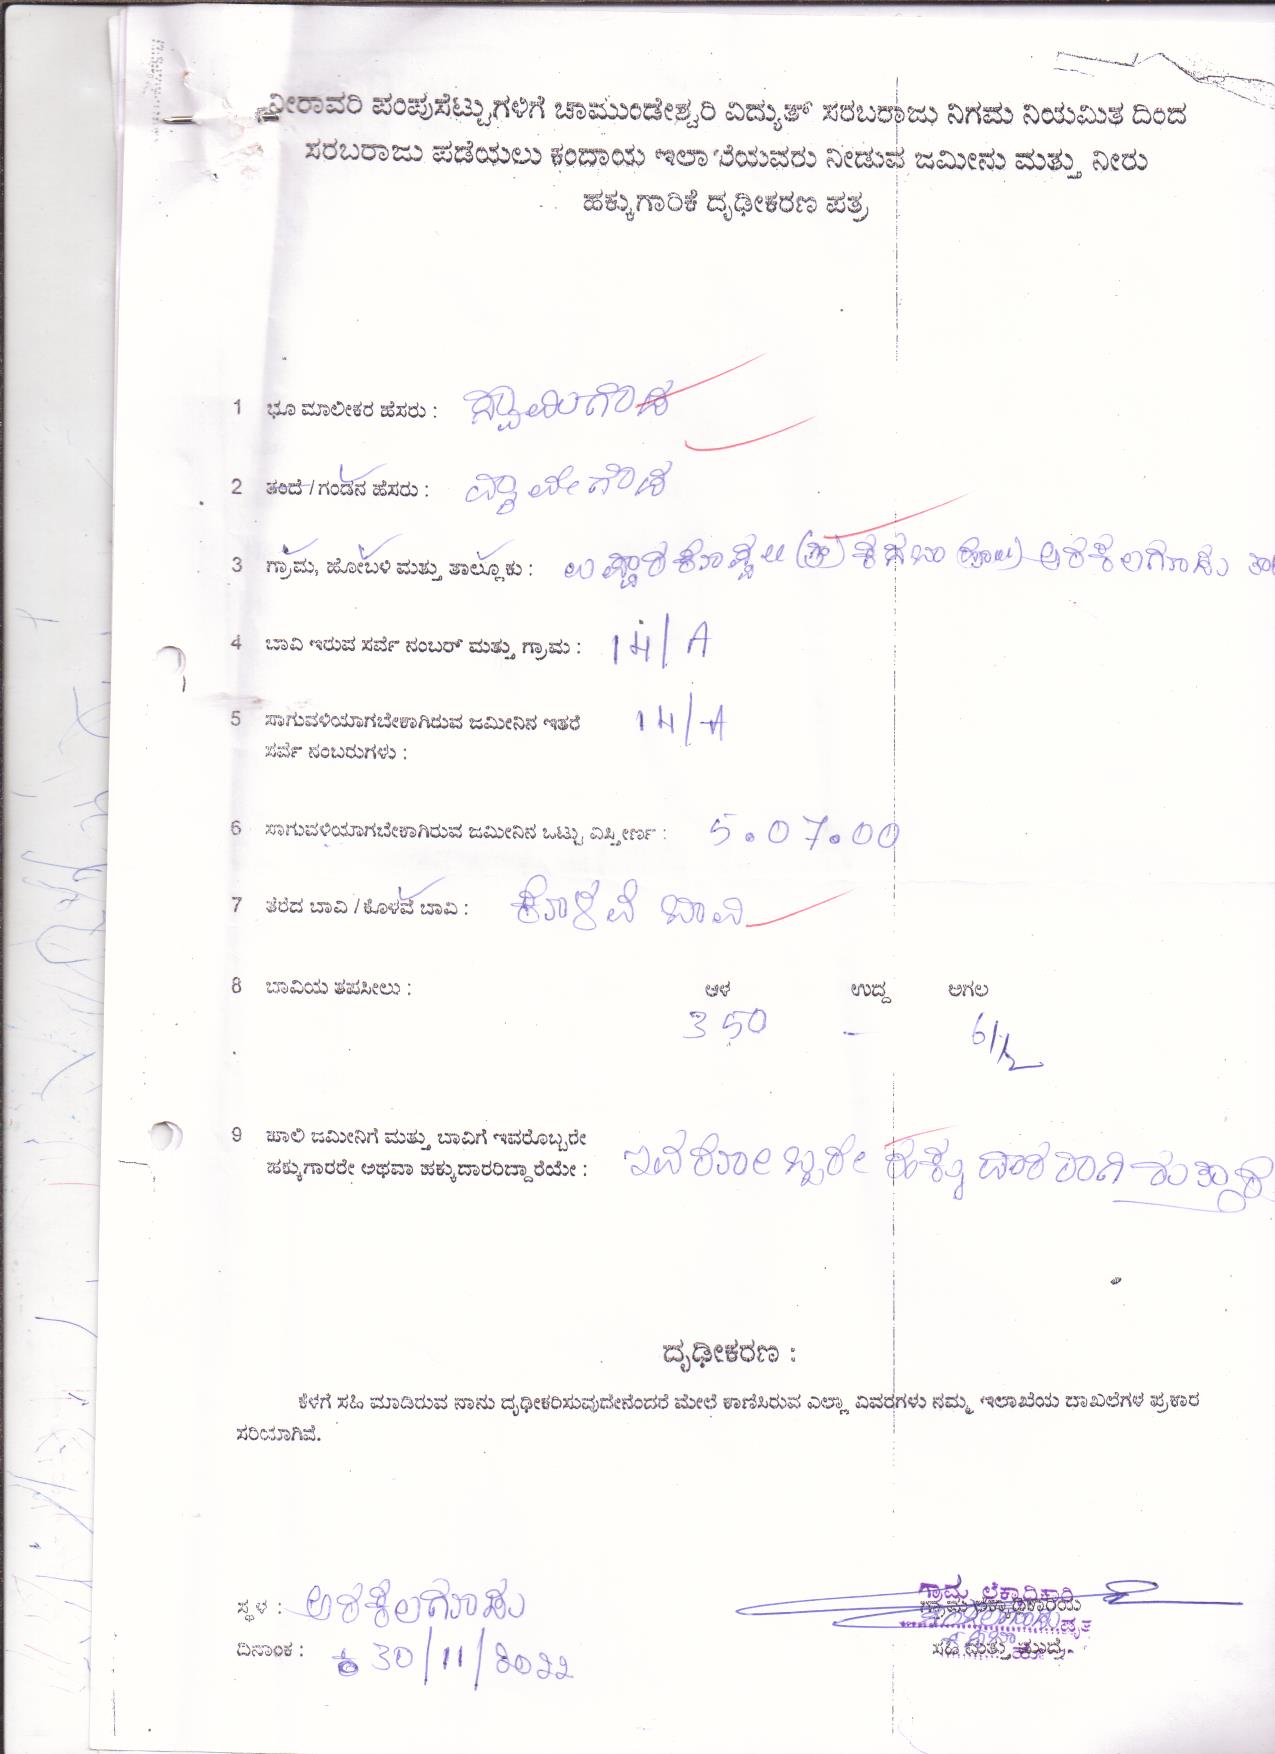 ನೀರಾವರಿ ಪಂಪುಸೆಟ್ಟುಗಳಿಗೆ ಚಾಮುಂಡೇಶ್ವರಿ ವಿದ್ಯುತ್ ಸರಬರಾಜು ನಿಗಮ ನಿಯಮಿತ ದಿಂದ
ಸರಬರಾಜು ಪಡೆಯಲು ಕಂದಾಯ ಇಲಾಖೆಯವರು ನೀಡುವ ಜಮೀನು ಮತ್ತು ನೀರು
ಹಕ್ಕುಗಾರಿಕೆ ದೃಢೀಕರಣ ಪತ್ರ
1 ಭೂ ಮಾಲೀಕರ ಹೆಸರು : ಸ್ವಾಮಿಗೌಡ
2 ತಂದೆ / ಗಂಡನ ಹೆಸರು :
3 ಗ್ರಾಮ, ಹೋಬಳಿ ಮತ್ತು ತಾಲ್ಲೂಕು : (ಗ್ರಾ) ಕಸಬಾ ಅರಕಲಗೂಡು ತಾ
4 ಬಾವಿ ಇರುವ ಸರ್ವೆ ನಂಬರ್ ಮತ್ತು ಗ್ರಾಮ : 14/A
5 ಸಾಗುವಳಿಯಾಗಬೇಕಾಗಿರುವ ಜಮೀನಿನ ಇತರೆ 14/A
ಸರ್ವೆ ನಂಬರುಗಳು :
6 ಸಾಗುವಳಿಯಾಗಬೇಕಾಗಿರುವ ಜಮೀನಿನ ಒಟ್ಟು ವಿಸ್ತೀರ್ಣ : 5.07.00
7 ತೆರೆದ ಬಾವಿ / ಕೊಳವೆ ಬಾವಿ : ಕೊಳವೆ ಬಾವಿ
8 ಬಾವಿಯ ತಪಸೀಲು : ಆಳ ಉದ್ದ ಅಗಲ
350 – 6½
9 ಖಾಲಿ ಜಮೀನಿಗೆ ಮತ್ತು ಬಾವಿಗೆ ಇವರೊಬ್ಬರೇ
ಹಕ್ಕುಗಾರರೇ ಅಥವಾ ಹಕ್ಕುದಾರರಿದ್ದಾರೆಯೇ : ಇವರೊಬ್ಬರೇ ಹಕ್ಕುದಾರರಾಗಿರುತ್ತಾರೆ
ದೃಢೀಕರಣ :
ಕೆಳಗೆ ಸಹಿ ಮಾಡಿರುವ ನಾನು ದೃಢೀಕರಿಸುವುದೇನೆಂದರೆ ಮೇಲೆ ಕಾಣಿಸಿರುವ ಎಲ್ಲಾ ವಿವರಗಳು ನಮ್ಮ ಇಲಾಖೆಯ ದಾಖಲೆಗಳ ಪ್ರಕಾರ
ಸರಿಯಾಗಿವೆ.
ಸ್ಥಳ : ಅರಕಲಗೂಡು
ಗ್ರಾಮ ಲೆಕ್ಕಾಧಿಕಾರಿ
ಗ್ರಾಮ ಲೆಕ್ಕಾಧಿಕಾರಿಯ
ವೃತ್ತ
ದಿನಾಂಕ : 30/11/2022
ಸಹಿ ಮತ್ತು ಮುದ್ರೆ